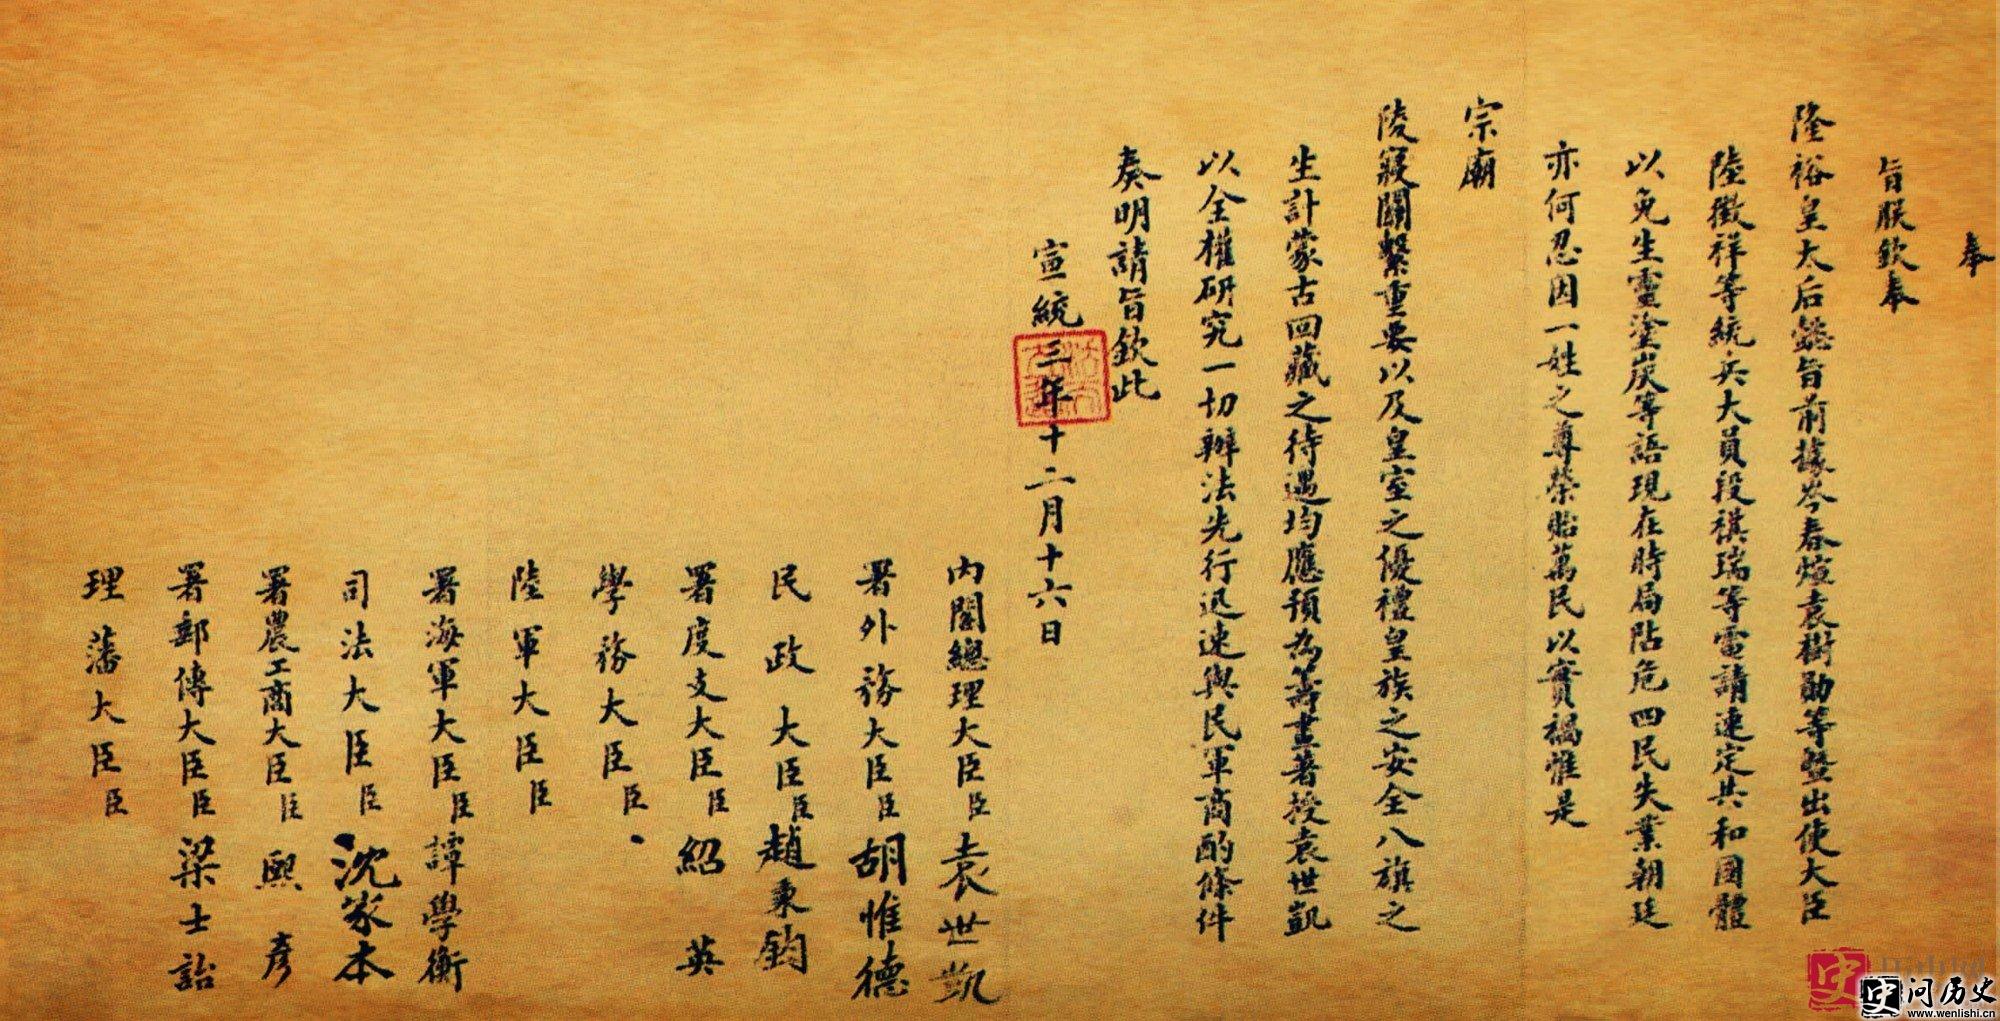 奉
旨朕欽奉
隆裕皇太后懿旨前據岑春煊袁樹勛等暨出使大臣
陸徵祥等統兵大員段祺瑞等電請速定共和國體
以免生靈塗炭等語現在時局阽危四民失業朝廷
亦何忍因一姓之尊榮貽萬民以實禍惟是
宗廟
陵寢關繫重要以及皇室之優禮皇族之安全八旗之
生計蒙古回藏之待遇均應預為籌畫著授袁世凱
以全權研究一切辦法先行迅速與民軍商酌條件
奏明請旨欽此
宣統三年十二月十六日
內閣總理大臣臣袁世凱
署外務大臣臣胡惟德
民政大臣臣趙秉鈞
署度支大臣臣紹英
學務大臣臣
陸軍大臣臣
署海軍大臣臣譚學衡
司法大臣臣沈家本
署農工商大臣臣熙彥
署郵傳大臣臣梁士詒
理藩大臣臣
史问历史
www.wenlishi.cn